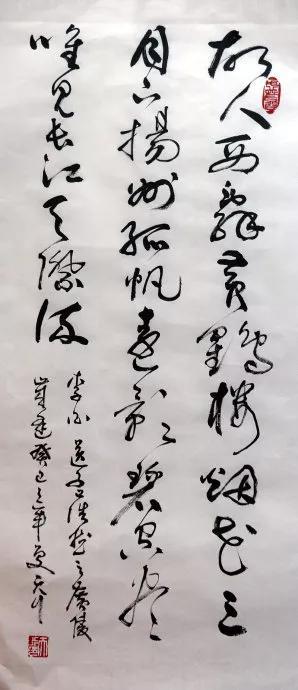 故人西辞黄鹤楼烟花三
月下揚州孤帆遠影碧空尽
唯見长江天際流
李白送孟浩然之廣陵
歲逢癸巳之年夏天